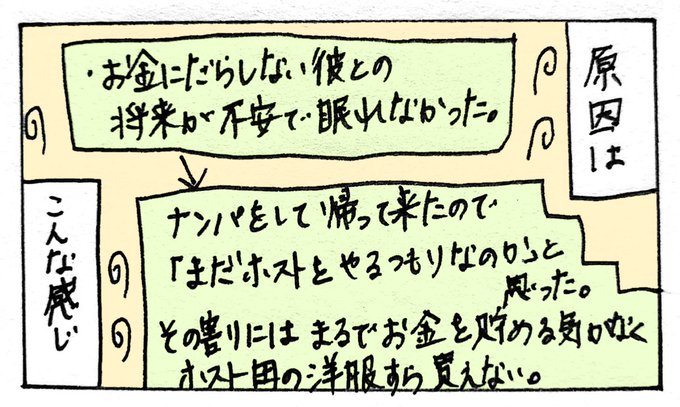 原因は
・お金にだらしない彼との
将来が不安で眠れなかった。
ナンパをして帰って来たので
「まだホストをやるつもりなのか」と
思った。
その割りにはまるでお金を貯める気がなく
ホスト用の洋服すら買えない。
こんな感じ